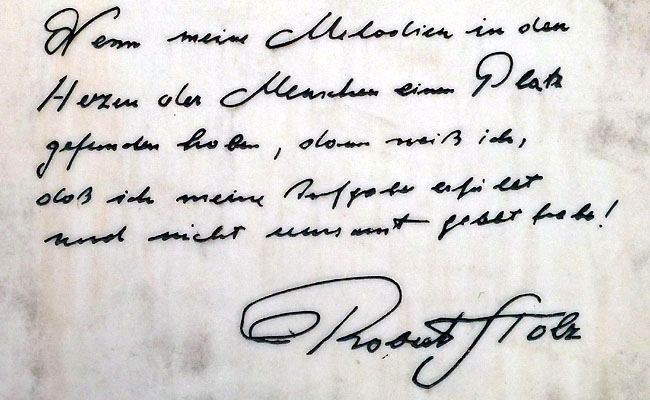 Wenn meine Melodien in den
Herzen der Menschen einen Platz
gefunden haben, dann weiß ich,
daß ich meine Aufgabe erfüllt
und nicht umsonst gelebt habe!
Robert Stolz